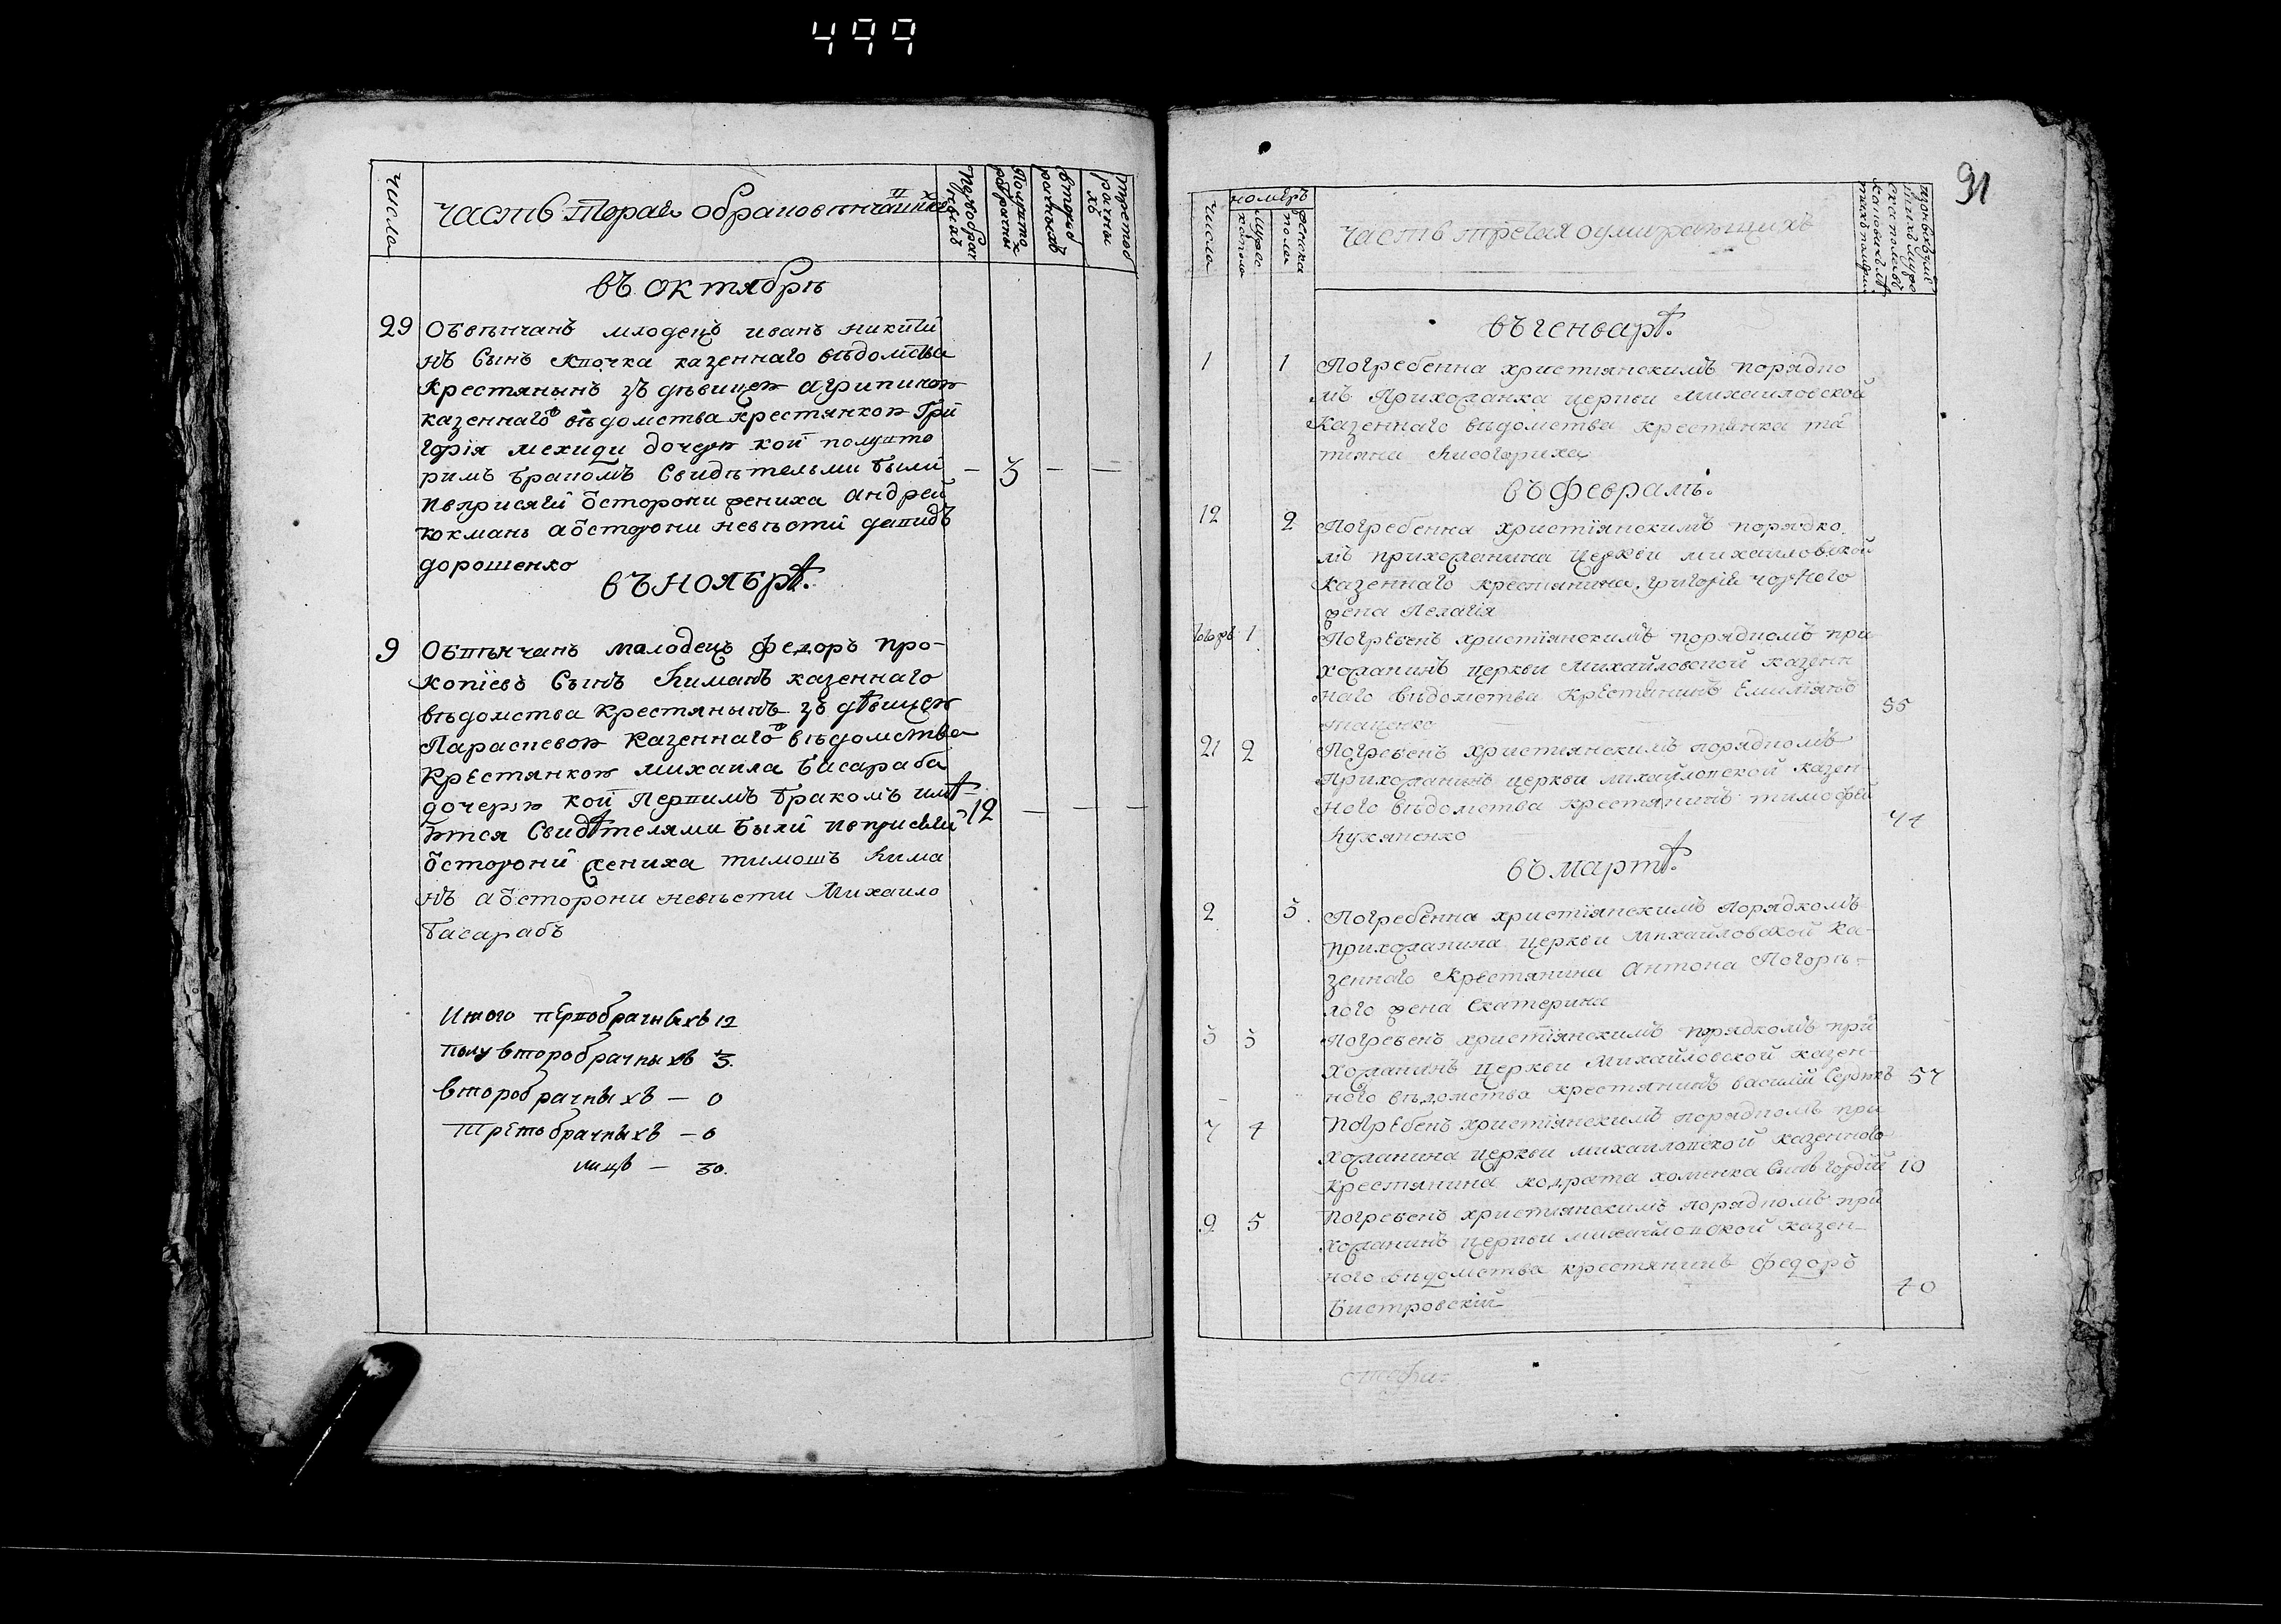 499
числа
часть вторая обраковѣнчаннихъ
первобрачныхъ
полувторобрачныхъ
второбрачныхъ
третобрачныхъ
въ октябрѣ
29 Обвѣнчанъ млодецъ иванъ никитѣ
нъ Сынъ казеннаго вѣдомства
Крестянынъ зъ дѣвицею агрипиною
казеннаго вѣдомства крестянкою Гри
горія мехиди дочерю кой полувто
римъ бракомъ Свидѣтельми были — 3 — —
попрысягѣ ѿсторони жениха андрей
юкманъ аѿсторони невѣсти давидъ
дорошенко
въ ноябрѣ.
9 Обвѣнчанъ молодецъ федоръ про-
копіевъ Сынъ Лиманъ казеннаго
вѣдомства крестянынъ зъ дѣвицею
Параскевою казеннаго вѣдомства
крестянкою михаила Басараба
дочерю кой Первимъ бракомъ имѣ-
ются Свидѣтелями были попрысягѣ 12 — — —
ѿсторони жениха тимошъ Лима
нъ аѿсторони невѣсти Михаило
Басарабъ
Итого первобрачныхъ 12
полувторобрачныхъ 3.
второбрачныхъ — 0
третобрачныхъ — 0
лицъ — 30.
91
числа
номеръ
мужеска пола
женска пола
часть третая оумирающихъ
въ генварѣ.
1 1 Погребенна христіянскимъ порядко
мъ Прихожанка церкви михаиловской
Казеннаго вѣдомства крестянка та
тияна Лисогориха
въ февралѣ.
12 2 Погребенна христіянскимъ порядко
мъ прихожанина церкви михаиловской
казеннаго крестянина григорія чорного
жена Пелагія
1 Погребенъ христіянскимъ порядкомъ при
хожанинъ церкви Михайловской казенн
наго вѣдомства крестянинъ Емиліянъ 55
ткаченко
21 2 Погребенъ христіянскимъ порядкомъ
Прихожанинъ церкви михайловской казен
ного вѣдомства крестянинъ тимофѣй 74
Лукяненко
въ мартѣ.
2 3. Погребенна христіянскимъ порядкомъ
прихожанина церкви Михайловской ка-
зеннаго крестянина антона Погорѣ-
лого жена Екатерина
5 3 Погребенъ христіянскимъ порядкомъ при
хожанинъ церкви Михайловской казен-
ного вѣдомства крестянинъ василій Сердюкъ 57
7 4 Погребенъ христіянскимъ порядкомъ при
хожанина церкви михаиловской казенного
крестянина кодрата хоменка Синъ гордій 10
9 5 Погребенъ христіянскимъ порядкомъ при
хожанинъ церкви михайловской казен
ного вѣдомства крестянинъ федоръ
Бистровскій 40